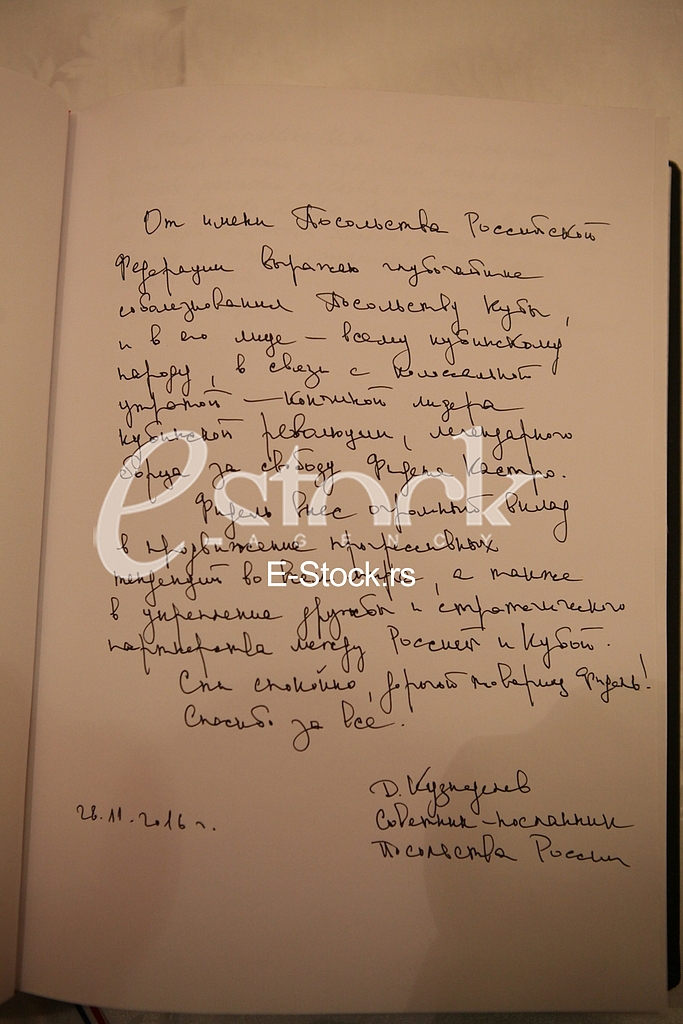 От имени Посольства Российской
Федерации выражаю глубочайшие
соболезнования Посольству Кубы,
и в его лице – всему кубинскому
народу, в связи с колоссальной
утратой – кончиной лидера
кубинской революции, легендарного
борца за свободу Фиделя Кастро.
Фидель внес огромный вклад
в продвижение прогрессивных
тенденций во всем мире, а также
в укрепление дружбы и стратегического
партнерства между Россией и Кубой.
Спи спокойно, дорогой товарищ Фидель!
Спасибо за всё.
Д. Кузнецов
Советник-посланник
Посольства России
28.11.2016 г.
estock
AGENCY
E-Stock.rs